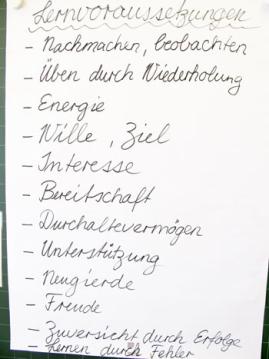 Lernvoraussetzungen
- Nachmachen, beobachten
- Üben durch Wiederholung
- Energie
- Wille, Ziel
- Interesse
- Bereitschaft
- Durchaltevermögen
- Unterstützung
- Neugierde
- Freude
- Zuversicht durch Erfolge
- Lernen durch Fehler